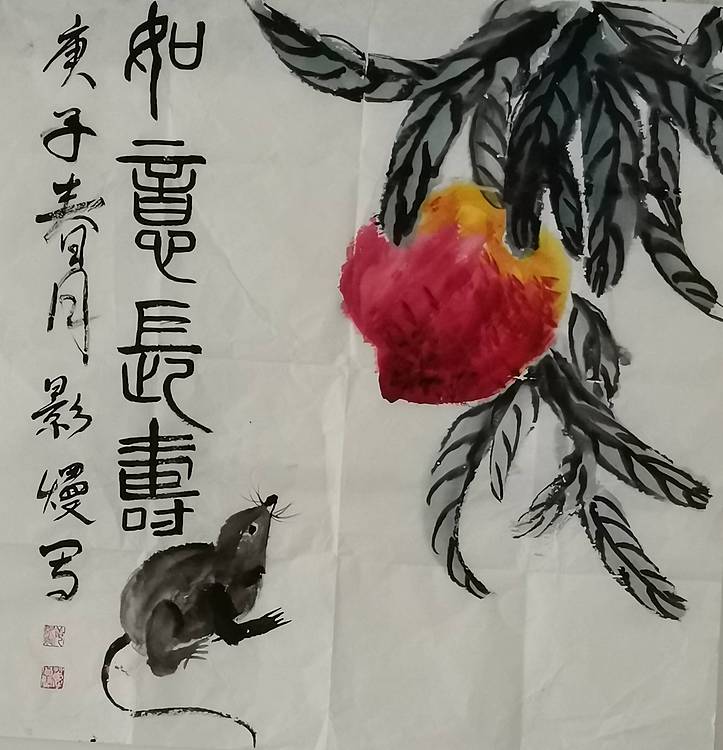 如意長壽
庚子春月影熳写